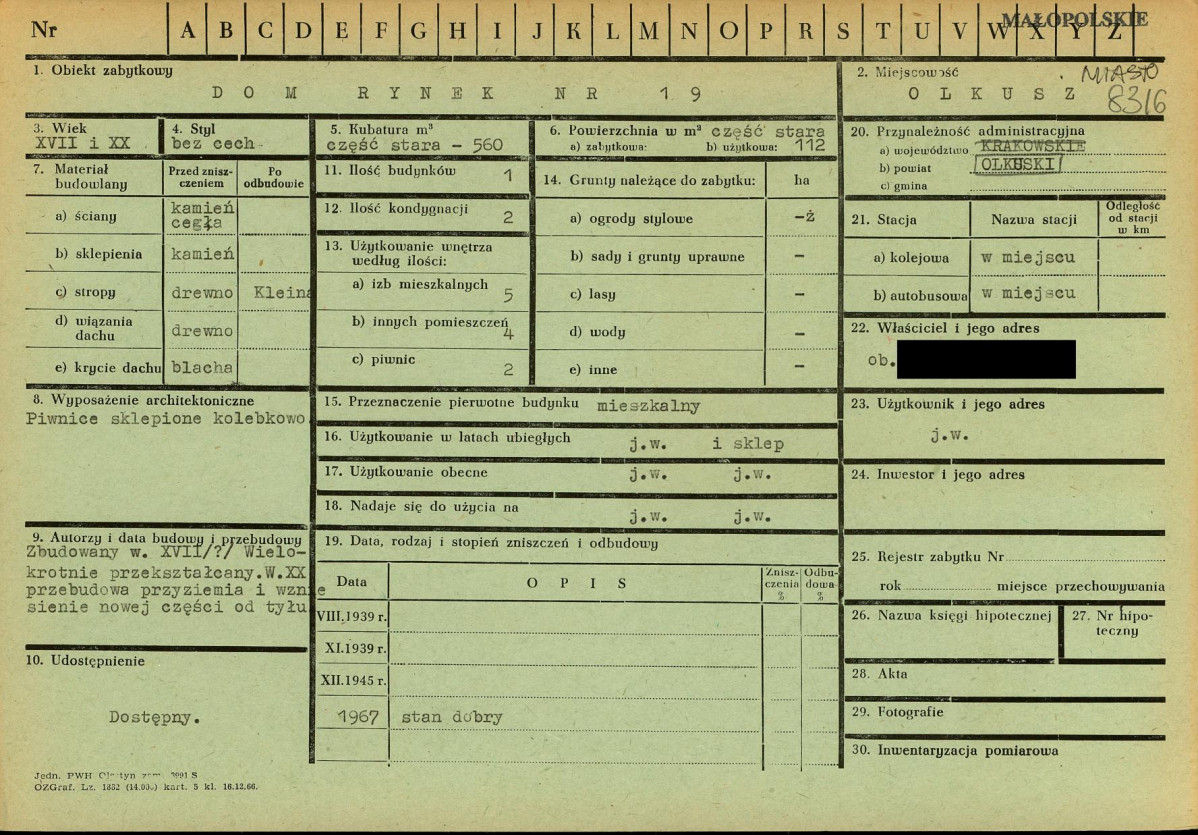 Nr A B C D E F G H I J K L M N O P R S T U V W X Y Z
MAŁOPOLSKIE
1. Obiekt zabytkowy
DOM RYNEK NR 19
2. Miejscowość
MIASTO
OLKUSZ
8316
3. Wiek
XVII i XX
4. Styl
bez cech
5. Kubatura m³
część stara - 560
6. Powierzchnia w m² część stara
a) zabytkowa: b) użytkowa: 112
20. Przynależność administracyjna
a) województwo KRAKOWSKIE
b) powiat OLKUSKI
c) gmina
7. Materiał budowlany
Przed zniszczeniem
Po odbudowie
a) ściany kamień cegła
b) sklepienia kamień
c) stropy drewno Kleina
d) wiązania dachu drewno
e) krycie dachu blacha
11. Ilość budynków 1
12. Ilość kondygnacji 2
13. Użytkowanie wnętrza według ilości:
a) izb mieszkalnych 5
b) innych pomieszczeń 4
c) piwnic 2
14. Grunty należące do zabytku: ha
a) ogrody stylowe -ż
b) sady i grunty uprawne -
c) lasy -
d) wody -
e) inne -
21. Stacja Nazwa stacji Odległość od stacji w km
a) kolejowa w miejscu
b) autobusowa w miejscu
22. Właściciel i jego adres
ob.
8. Wyposażenie architektoniczne
Piwnice sklepione kolebkowo.
15. Przeznaczenie pierwotne budynku mieszkalny
16. Użytkowanie w latach ubiegłych j.w. i sklep
17. Użytkowanie obecne j.w. j.w.
18. Nadaje się do użycia na j.w. j.w.
23. Użytkownik i jego adres
j.w.
24. Inwestor i jego adres
9. Autorzy i data budowy i przebudowy
Zbudowany w. XVII/?/ Wielo-
krotnie przekształcany.W.XX
przebudowa przyziemia i wznie
sienie nowej części od tyłu
19. Data, rodzaj i stopień zniszczeń i odbudowy
Data OPIS Zniszczenia % Odbudowa %
VIII.1939 r.
XI.1939 r.
XII.1945 r.
1967 stan dobry
25. Rejestr zabytku Nr
rok miejsce przechowywania
26. Nazwa księgi hipotecznej
27. Nr hipoteczny
28. Akta
29. Fotografie
30. Inwentaryzacja pomiarowa
10. Udostępnienie
Dostępny.
Jedn. PWH
OZGraf. Lz. 1832 kart. 5 kl. 16.12.66.